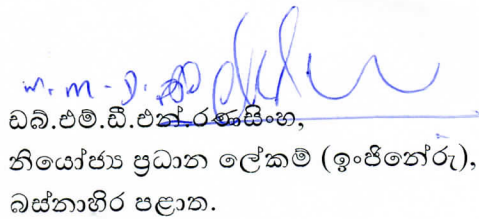 ඩබ්.එම්.ඩී.එන්.රණසිංහ,
නියෝජ්‍ය ප්‍රධාන ලේකම් (ඉංජිනේරු),
බස්නාහිර පළාත.